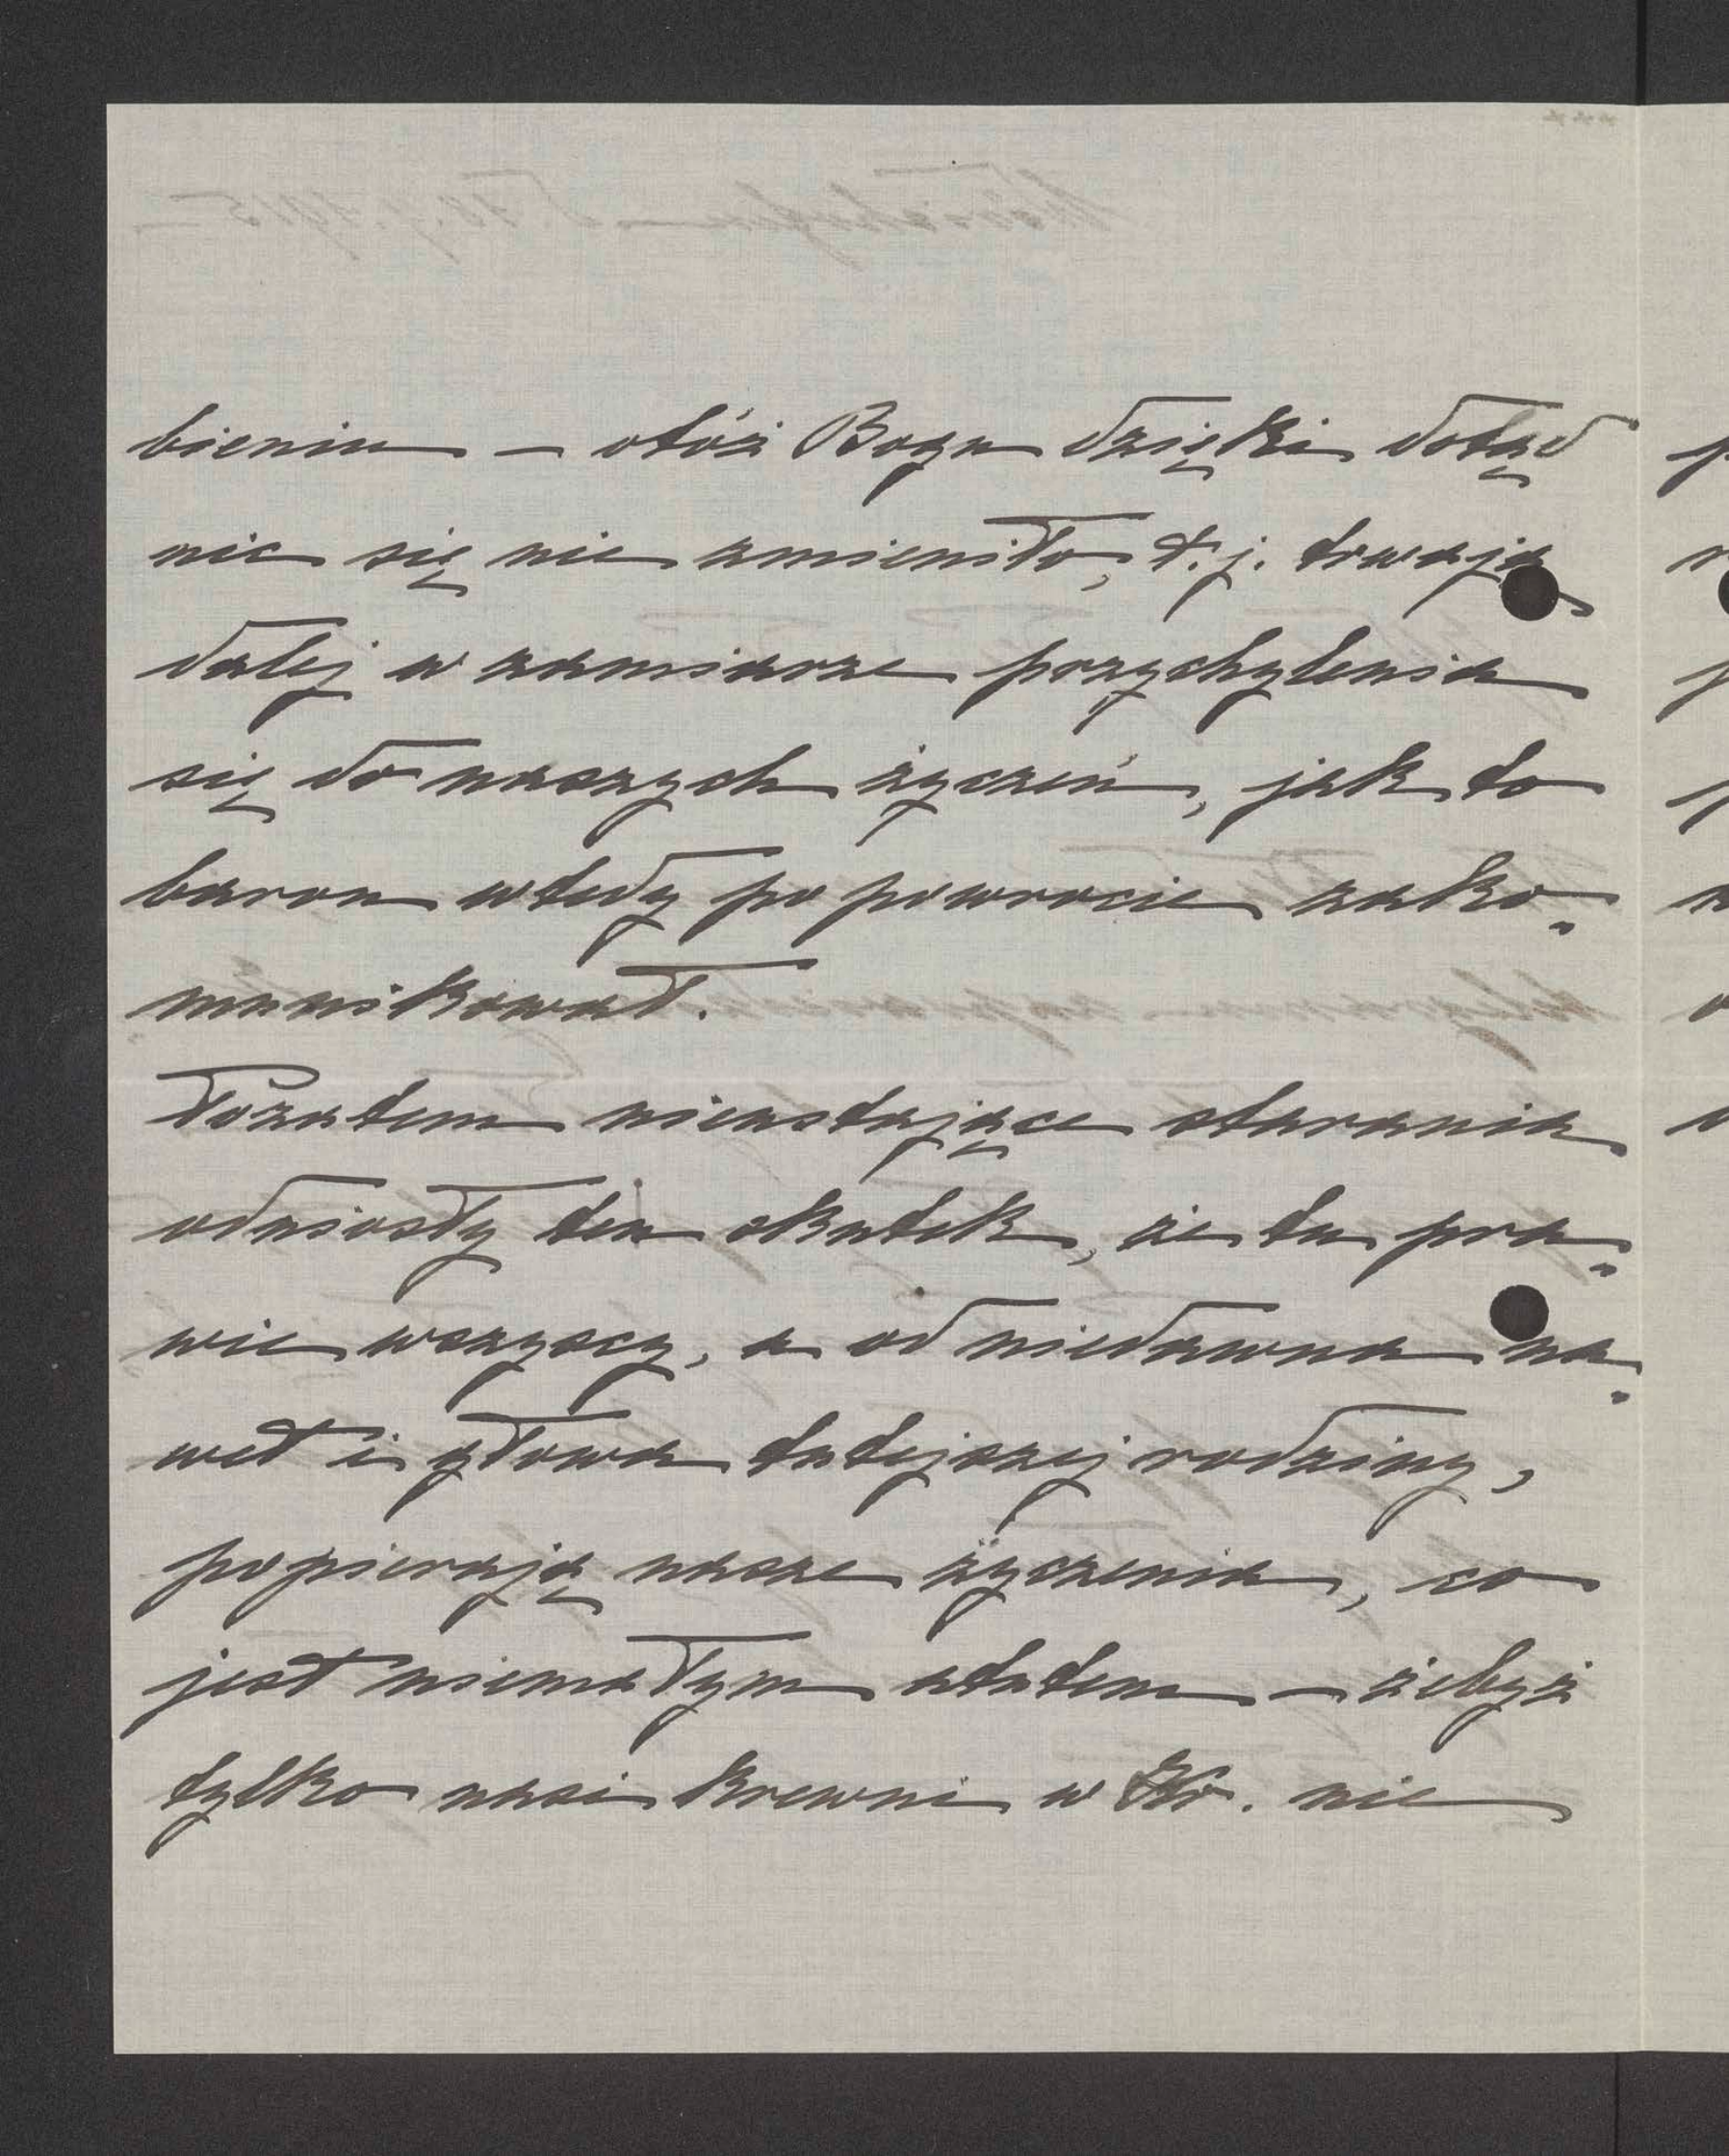 bieniu – otóż Bogu dzięki dotąd
nic się nie zmieniło, t.j. trwają
dalej w zamiarze przychylenia
się do naszych życzeń, jak to
baron wtedy po powrocie zako„
munikował.
Pozatem nieustające starania
odniosły ten skutek, że tu pra„
wie wszyscy, a od niedawna na„
wet i głowa tutejszej rodziny,
popierają nasze życzenia, co
jest niemałym atutem – żebyż
tylko nasi krewni w Kr. nie